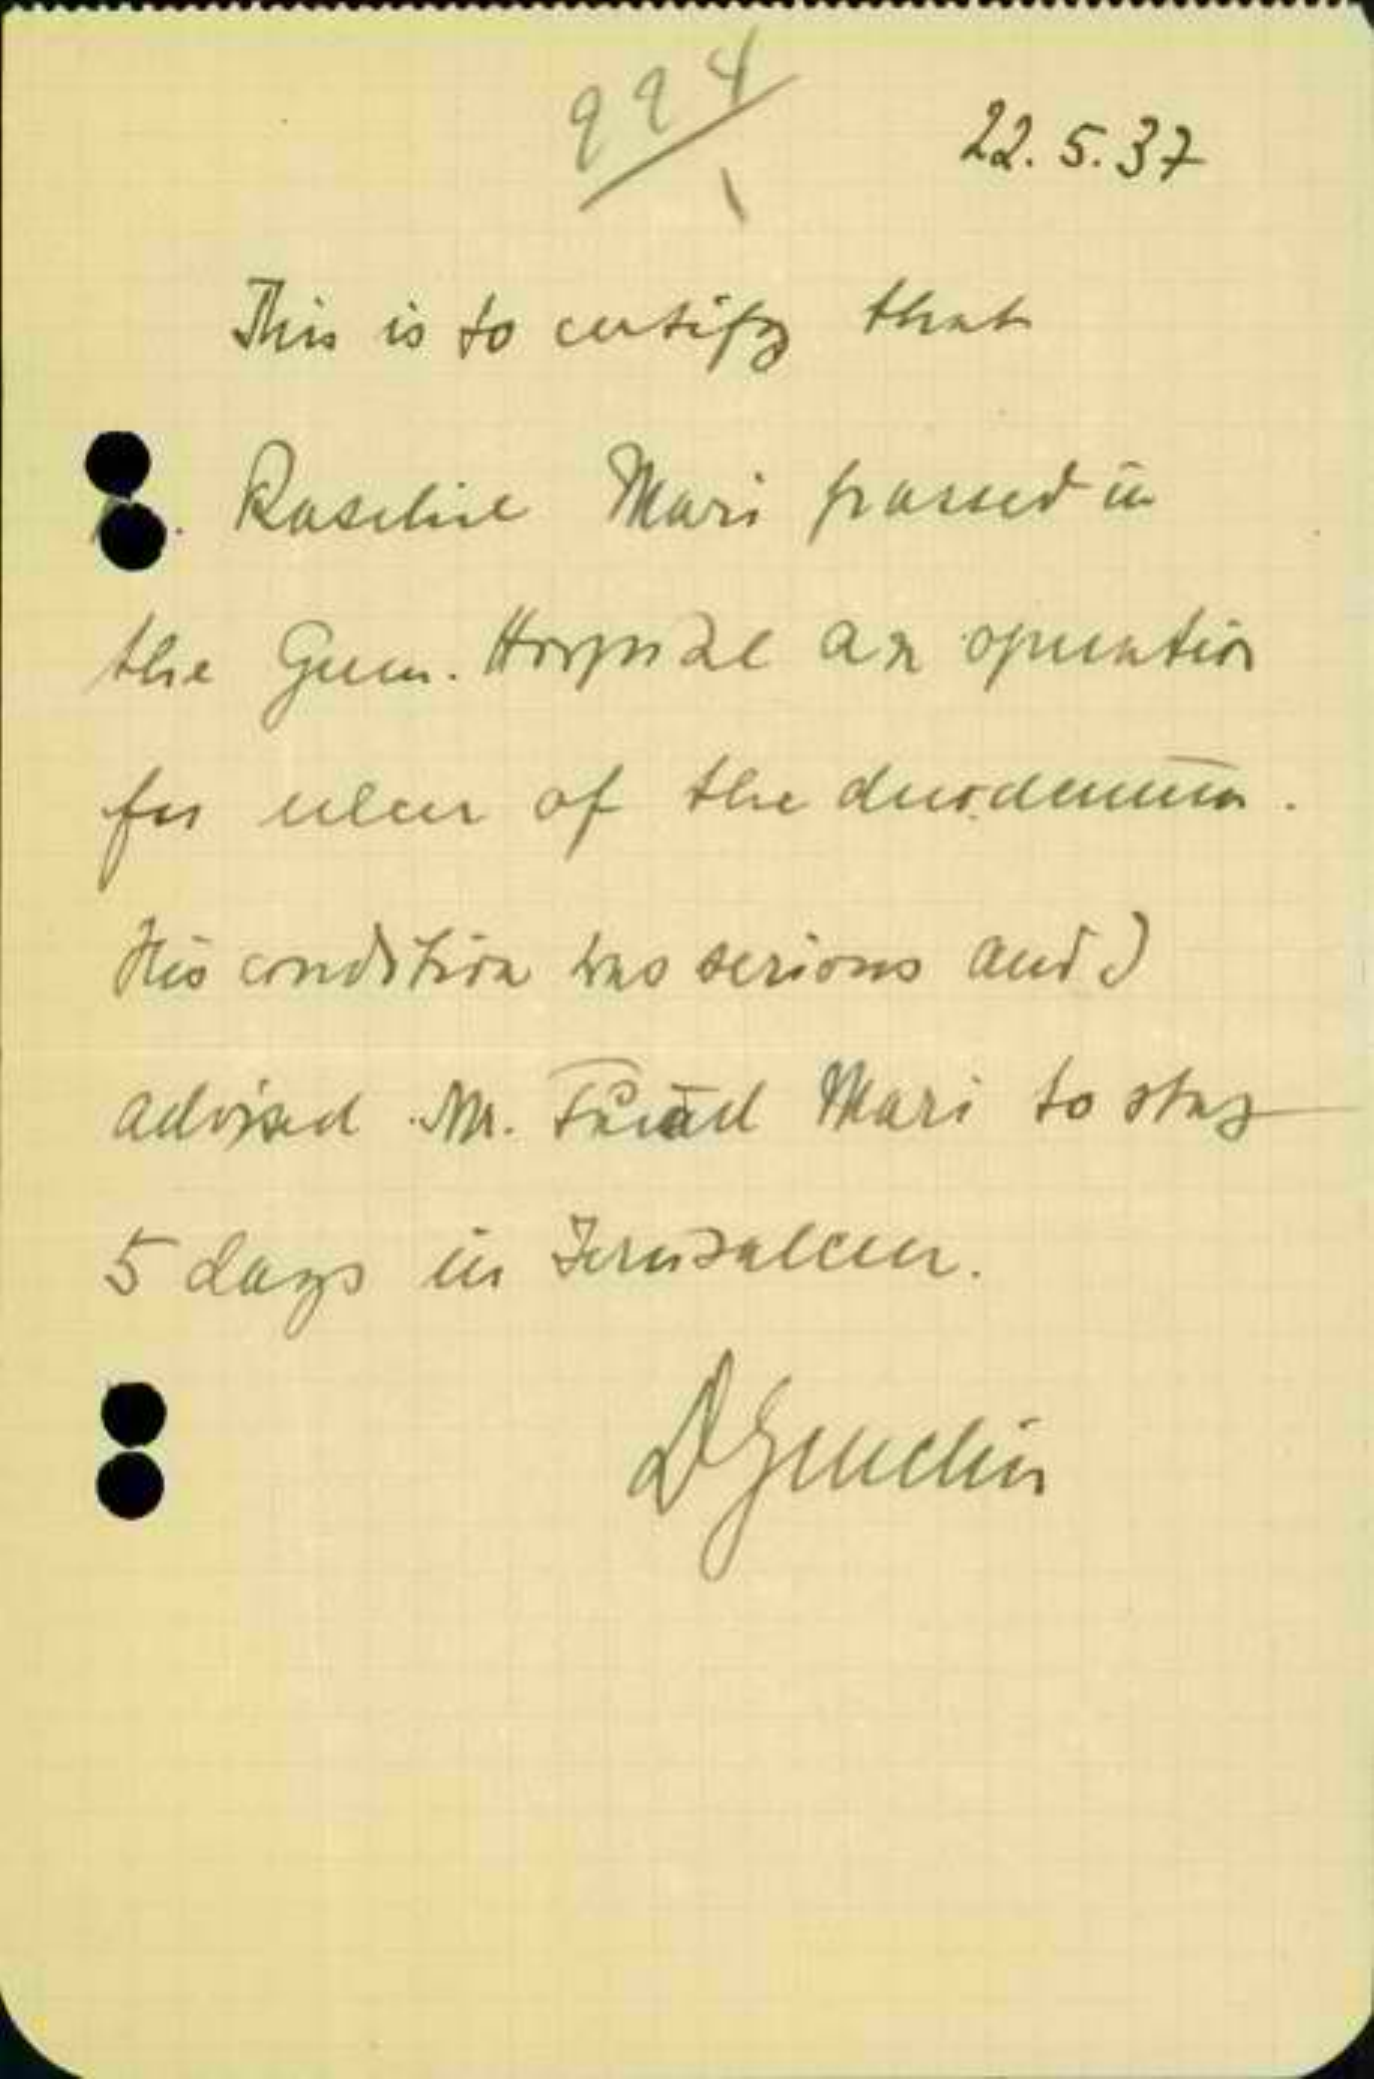 994
22.5.37
This is to certify that
Raschid Mari passed in
the Germ. Hospital an operation
for ulcer of the duodenum.
His condition was serious and I
advised Mr. Fuad Mari to stay
5 days in Jerusalem.